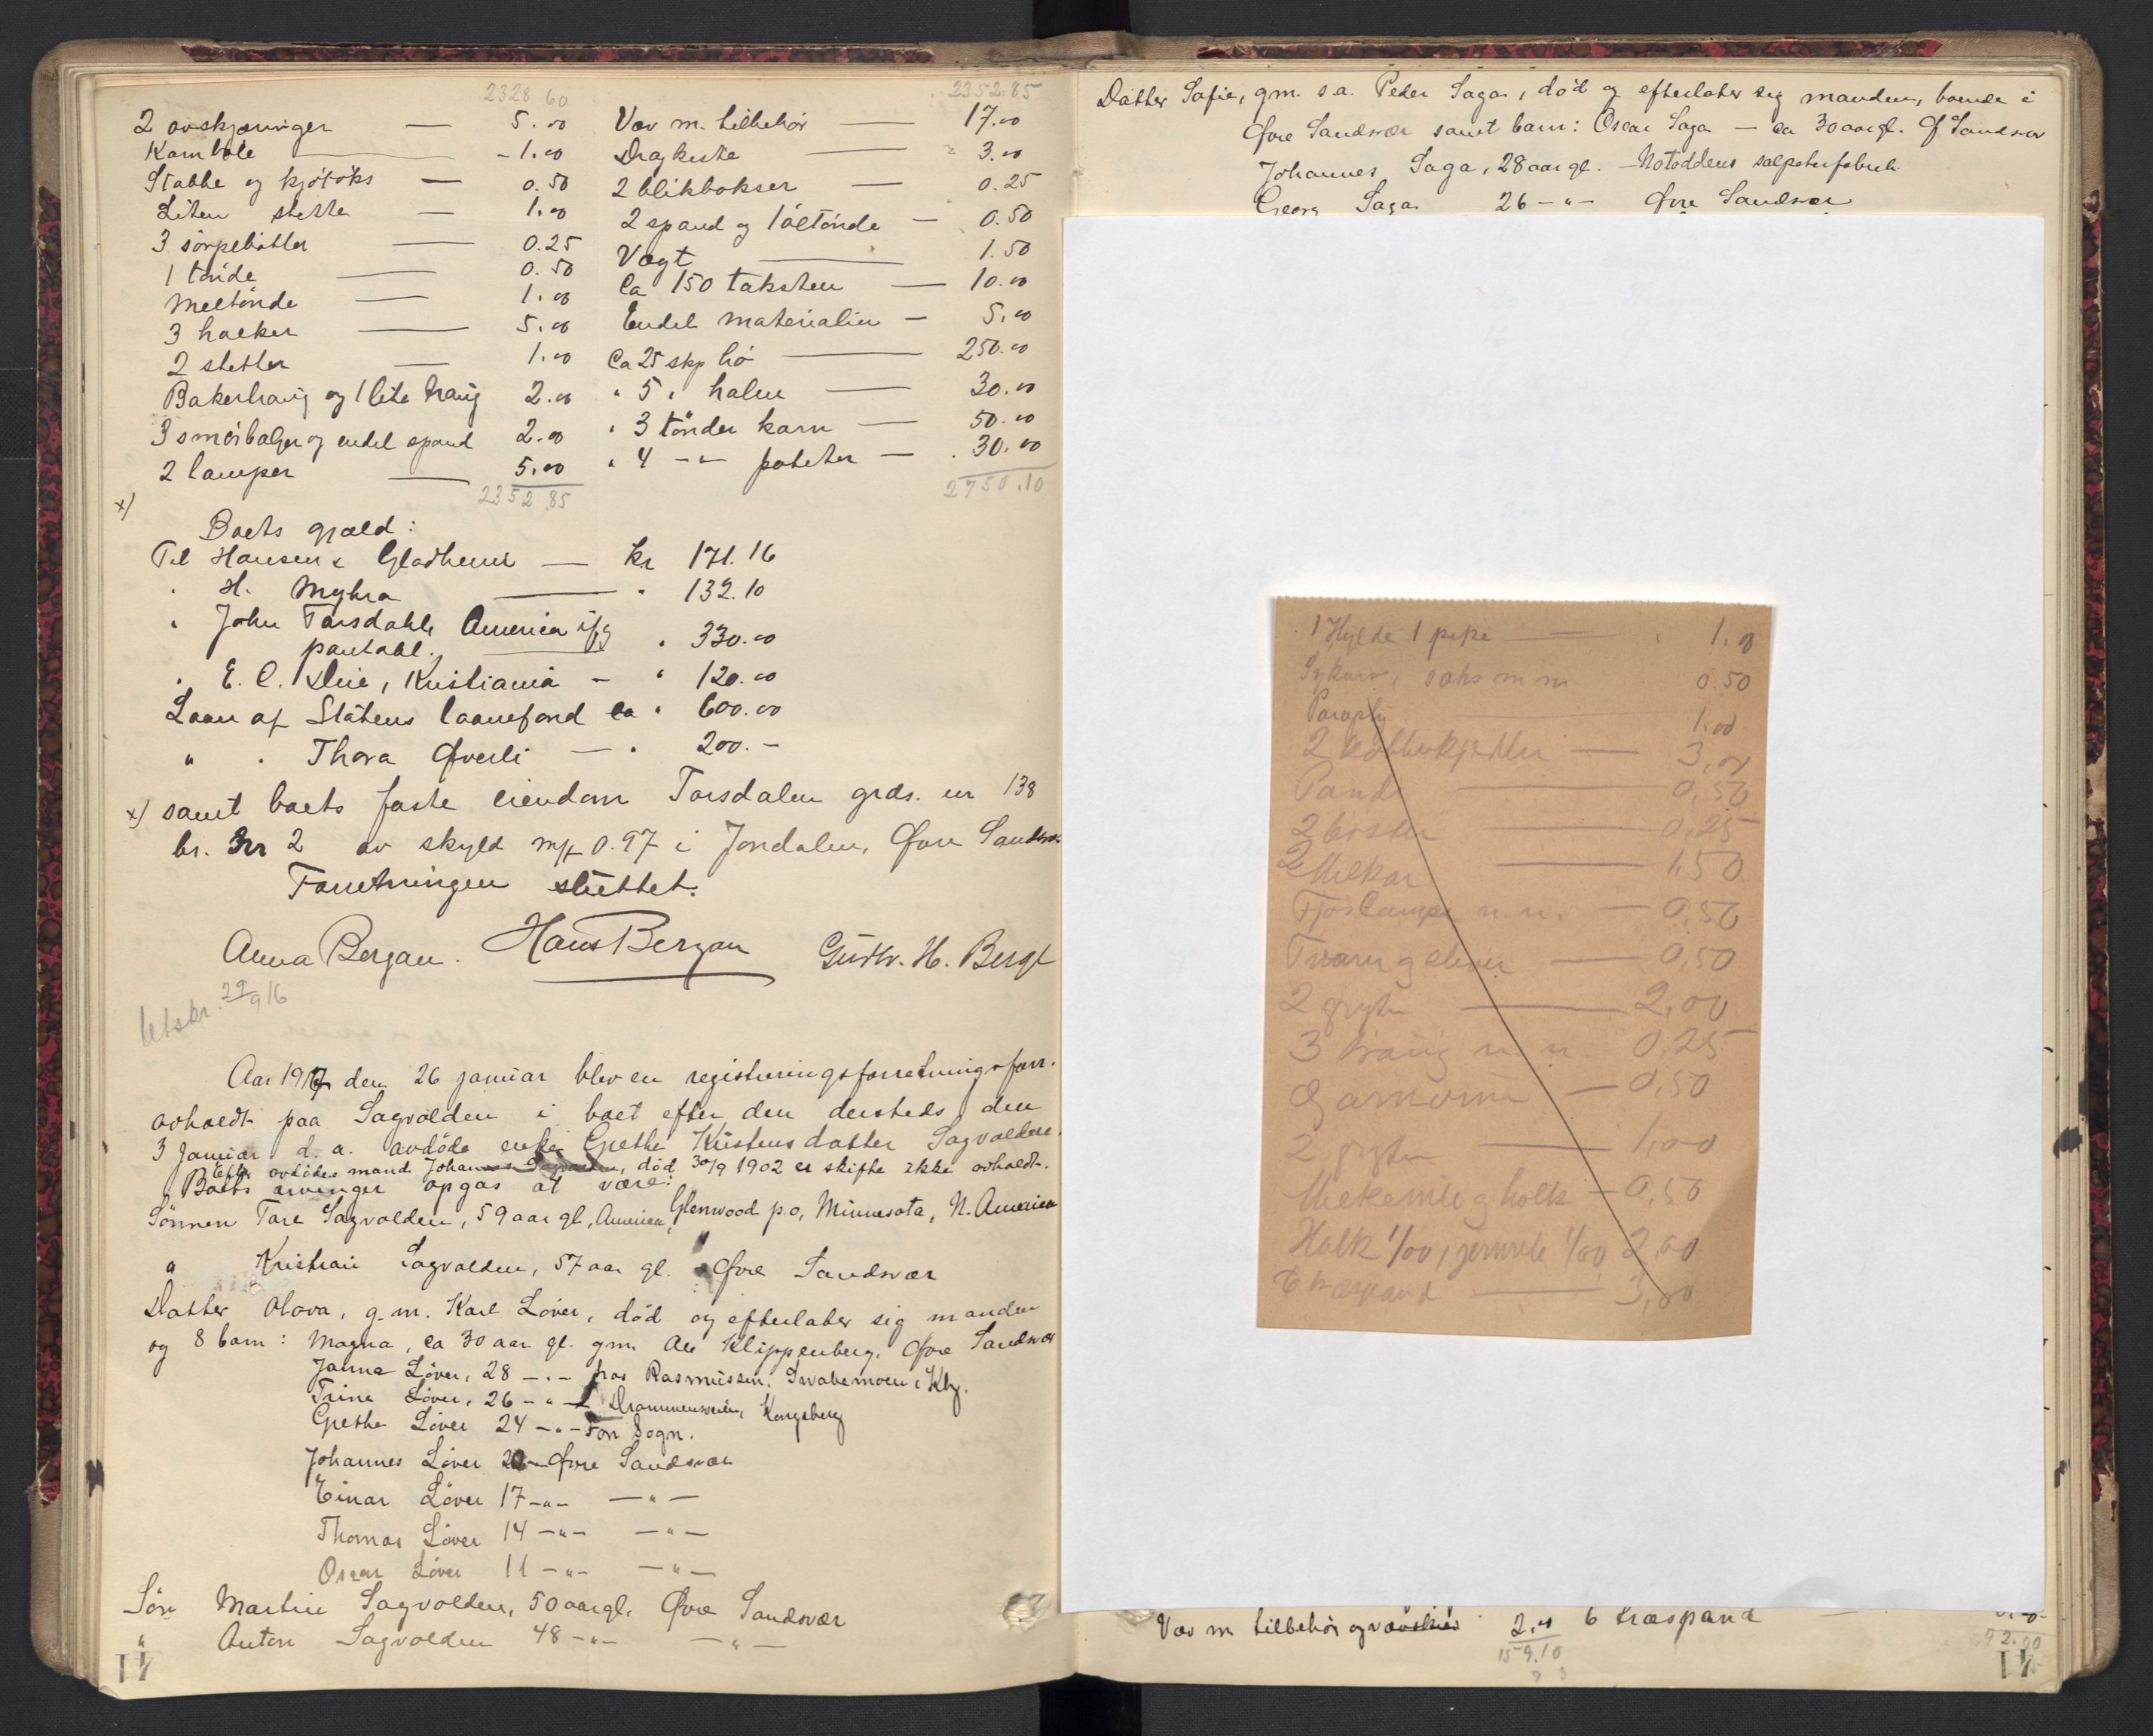 2328 60
2 avskjæringer — 5.00
Karmbole — 1.00
Stabbe og kjøtøks — 0.50
Liten slette — 1.00
3 sørpebøtter — 0.25
1 tønde — 0.50
Meltønde — 1.00
3 holker — 5.00
2 sletter — 1.00
Bakertraug og 1 lite traug 2.00
3 smørbalger og endel spand 2.00
2 lamper — 5.00
2352.85
2352.85
Væv m. tilbehør — 17.00
Dragkiste — 3.00
2 blikbokser — 0.25
2 spand og 1 øltønde — 0.50
Vegt — 1.50
Ca 150 taksten — 10.00
Endel materialier — 5.00
Ca 25 skp hø — 250.00
" 5 " halm — 30.00
" 3 tønder korn — 50.00
" 4 -"- poteter — 30.00
2750.10
x)
Boets gjæld:
Til Hansen & Gladheim — kr 171.16
" H. Myhra — " 132.10
" John Torsdahl, America ifg
pantobl. — " 330.00
" E. C. Due, Kristiania - " 120.00
Laan af Statens laanefond ca " 600.00
" " Thora Øverli — " 200.-
x) samt boets faste eiendom Torsdalen grds. nr 138
br. nr 2 av skyld mk 0.97 i Jondalen, Øvre Sandsvær
Forretningen sluttet.
Anna Bergan. Hans Bergan Gustv. H. Berge
Utskr. 29/9 16
Aar 1917 den 26 januar blev en registreringsforretning forr.
avholdt paa Sagvolden i boet efter den dersteds den
3 Januar d. a. avdøde enke Grethe Kristensdatter Sagvolden.
Efter avdødes mand Johannes Sagvolden, død 30/9 1902 er skifte ikke avholdt.
Boets arvinger opgas at være:
Sønnen Tore Sagvolden, 59 aar gl, America, Glenwood p.o, Minnesota, N. America
" Kristian Sagvolden, 57 aar gl. Øvre Sandsvær
Datter Olava, g.m. Karl Løver, død og efterlater sig manden
og 8 barn: Magna, ca 30 aar gl. gm. Ale Klippenberg, Øvre Sandsvær
Janna Løver, 28 -"- hos Rasmussen, Svabemoen i Kbg.
Trine Løver, 26 -"- Drammensveien, Kongsberg
Grethe Løver 24 -"- Fon Sogn.
Johannes Løver 20 - Øvre Sandsvær
Einar Løver 17 -"- -"-
Thomas Løver 14 -"- -"-
Oscar Løver 11 -"- -"-
Søn Martin Sagvolden, 50 aar gl. Øvre Sandsvær
" Anton Sagvolden 48 -"- -"-
41
Datter Sofie, gm. s.a. Peder Saga, død og efterlater sig manden, boende i
Øvre Sandsvær samt barn: Oscar Saga — ca 30 aar gl. Ø Sandsvær
Johannes Saga, 28 aar gl. - Notoddens salpeterfabrik
Georg Saga 26 -"- Øvre Sandsvær
1 Hylde 1 pipe — 1.00
Sykurv, saks m m 0.50
Paraply — 1.00
2 kaffekjedler — 3,00
Pande — 0,50
2 bøtter — 0,25
2 Melkar — 1,50
Fjøslampe m.m. — 0,50
Tvarer og sleiver — 0,50
2 gryter — 2,00
3 traug m.m. 0.25
Garnvinne — 0,50
2 gryter — 1,00
Melkesile og holk — 0,50
Holk 1/00, jernrete 1/00 2,00
6 træspand — 3,00
Væv m tilbehør og vævskier 2.00 6 træspand
159.10
92.00
41